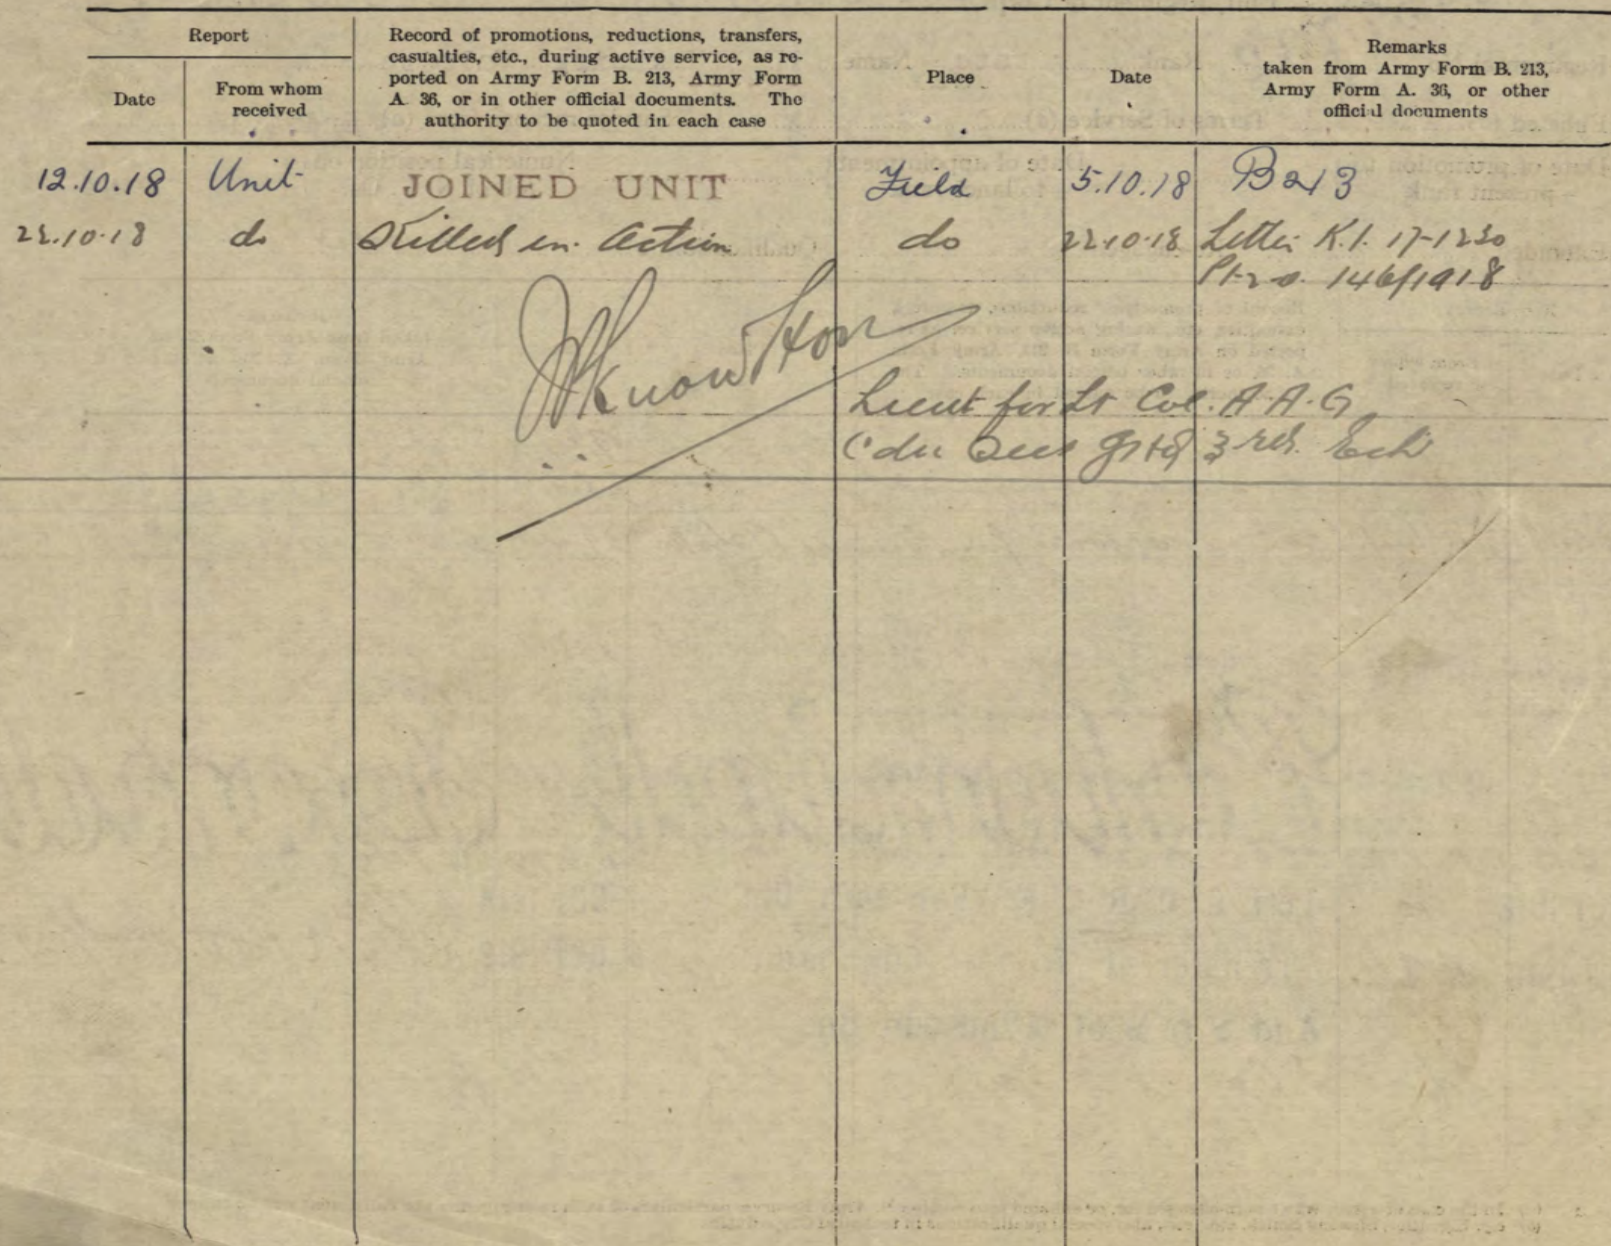 Report
Date
From whom
received
Record of promotions, reductions, transfers,
casualties, etc., during active service, as re-
ported on Army Form B. 213, Army Form
A. 36, or in other official documents. The
authority to be quoted in each case
Place
Date
Remarks
taken from Army Form B. 213,
Army Form A. 36, or other
official documents
12.10.18 Unit JOINED UNIT Field 5.10.18 B213
22.10.18 do Killed in Action do 22.10.18 Letter K.1. 17-1230
146/1918
Lieut for Lt Col. A.A.G
Cdn Sec GHQ 3rd. Ech